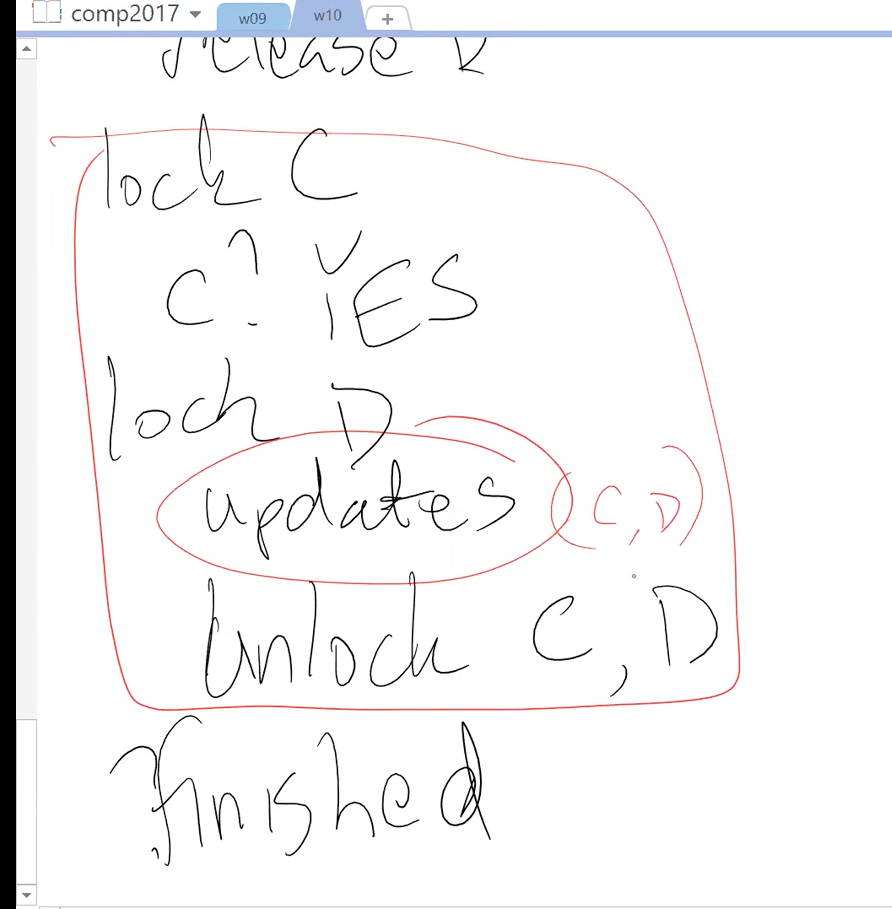 comp2017 w09 w10 +
release
lock C
C? YES
lock D
updates (C, D)
Unlock C, D
finished